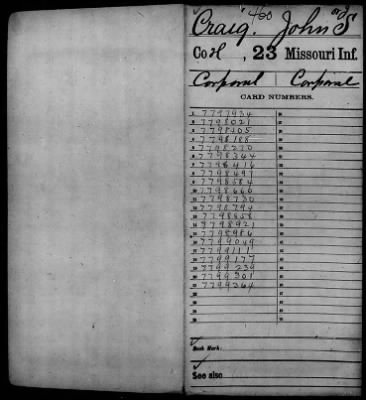 Craig, John S
Co H, 23 Missouri Inf.
Corporal Corporal
CARD NUMBERS.
7797934
7798021
7798105
7798188
7798270
7798364
7798416
7798497
7798584
7798660
7798730
7798794
7798858
7798921
7798986
7799049
7799111
7799177
7799239
7799301
7799364
Book Mark:
See also